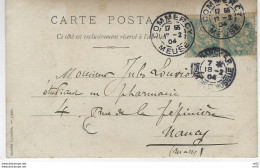 CARTE POSTALE
Ce côté est exclusivement réservé à l'adresse
COMMERCY
17 55
17 - 2
04
MEUSE
COMMERCY
17 55
17 - 2
04
MEUSE
7
18 - 2
04
Monsieur Jules
étudiant en pharmacie
4 Rue de la Pépinière
Nancy